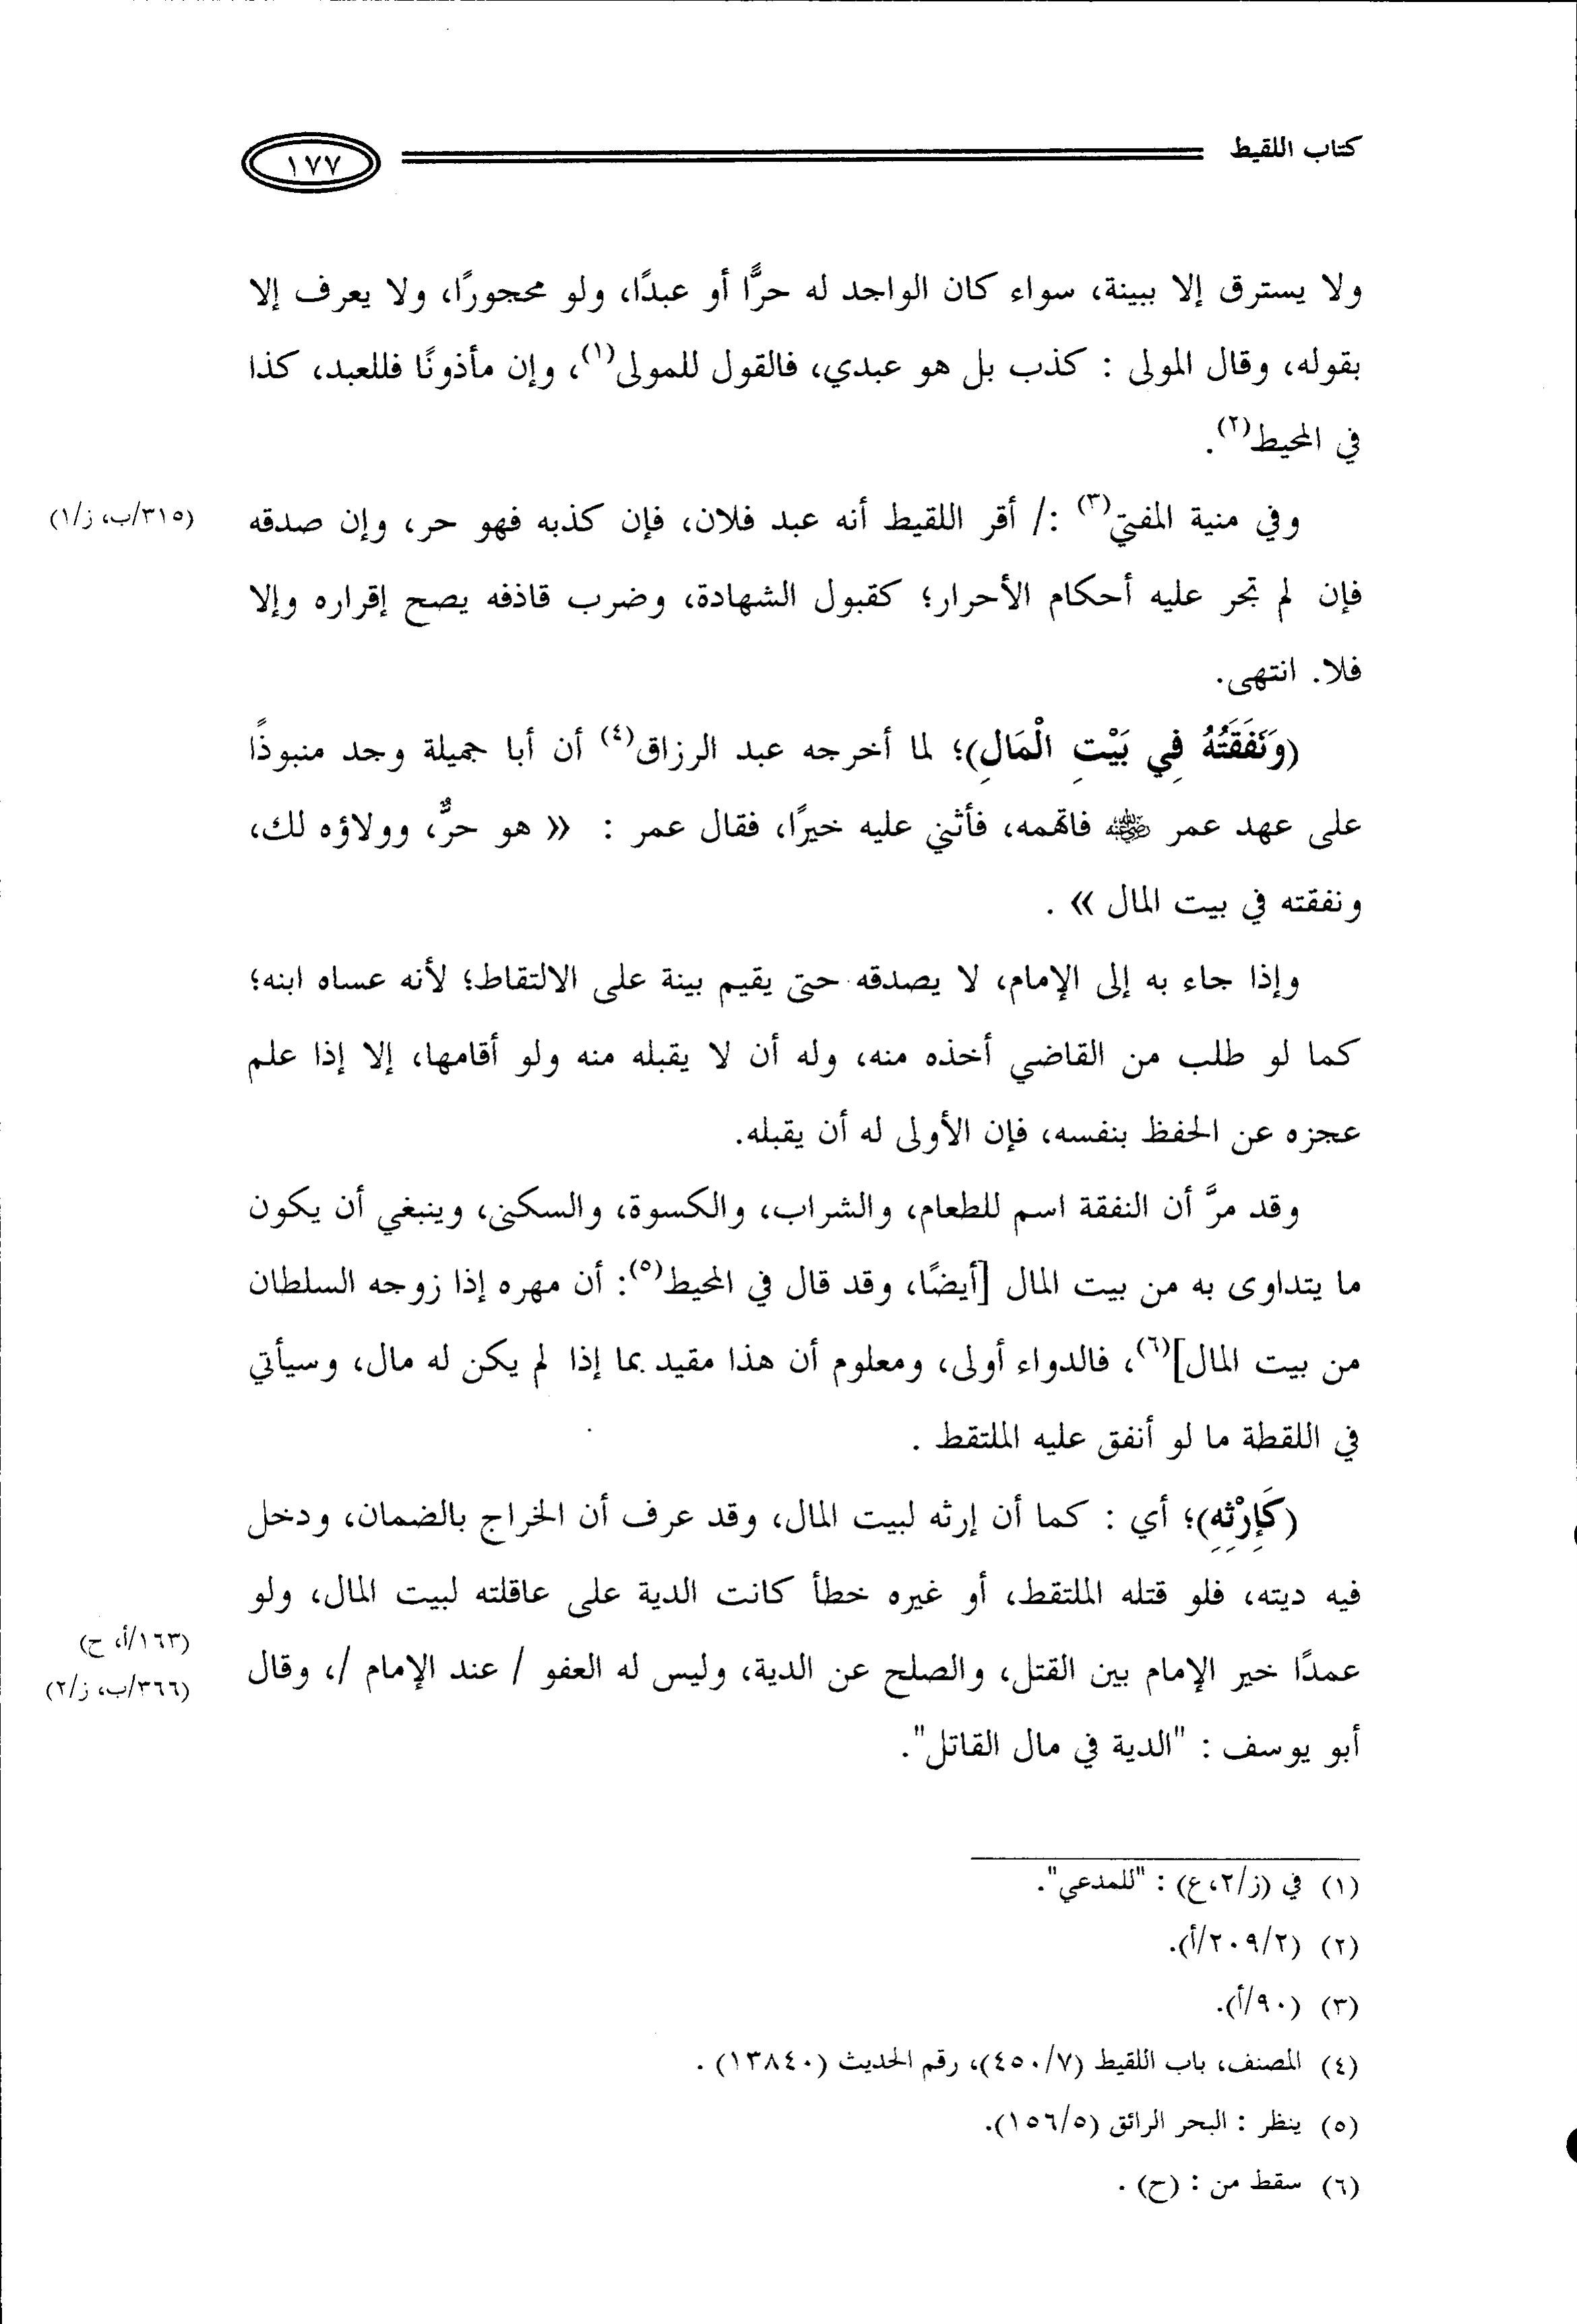 كتاب اللقيط
١٧٧
ولا يسترق إلا ببينة، سواء كان الواجد له حرًّا أو عبدًا، ولو محجورًا، ولا يعرف إلا
بقوله، وقال المولى : كذب بل هو عبدي، فالقول للمولى(١)، وإن مأذونًا فللعبد، كذا
في المحيط(٢).
وفي منية المفتي(٣) :/ أقر اللقيط أنه عبد فلان، فإن كذبه فهو حر، وإن صدقه
(٣١٥/ب، ز/١)
فإن لم تجر عليه أحكام الأحرار؛ كقبول الشهادة، وضرب قاذفه يصح إقراره وإلا
فلا. انتهى.
(وَنَفَقَتُهُ فِي بَيْتِ الْمَالِ)؛ لما أخرجه عبد الرزاق(٤) أن أبا جميلة وجد منبوذًا
على عهد عمر ﵁ فاتهمه، فأثني عليه خيرًا، فقال عمر : « هو حرٌّ، وولاؤه لك،
ونفقته في بيت المال » .
وإذا جاء به إلى الإمام، لا يصدقه حتى يقيم بينة على الالتقاط؛ لأنه عساه ابنه؛
كما لو طلب من القاضي أخذه منه، وله أن لا يقبله منه ولو أقامها، إلا إذا علم
عجزه عن الحفظ بنفسه، فإن الأولى له أن يقبله.
وقد مرَّ أن النفقة اسم للطعام، والشراب، والكسوة، والسكنى، وينبغي أن يكون
ما يتداوى به من بيت المال [أيضًا، وقد قال في المحيط(٥): أن مهره إذا زوجه السلطان
من بيت المال](٦)، فالدواء أولى، ومعلوم أن هذا مقيد بما إذا لم يكن له مال، وسيأتي
في اللقطة ما لو أنفق عليه الملتقط .
(كَإِرْثِهِ)؛ أي : كما أن إرثه لبيت المال، وقد عرف أن الخراج بالضمان، ودخل
فيه ديته، فلو قتله الملتقط، أو غيره خطأ كانت الدية على عاقلته لبيت المال، ولو
(١٦٣/أ، ح)
عمدًا خير الإمام بين القتل، والصلح عن الدية، وليس له العفو / عند الإمام /، وقال
(٣٦٦/ب، ز/٢)
أبو يوسف : "الدية في مال القاتل".
(١) في (ز/٢، ع) : "للمدعي".
(٢) (٢/٢٠٩/أ).
(٣) (٩٠/أ).
(٤) المصنف، باب اللقيط (٧/٤٥٠)، رقم الحديث (١٣٨٤٠) .
(٥) ينظر : البحر الرائق (٥/١٥٦).
(٦) سقط من : (ح) .